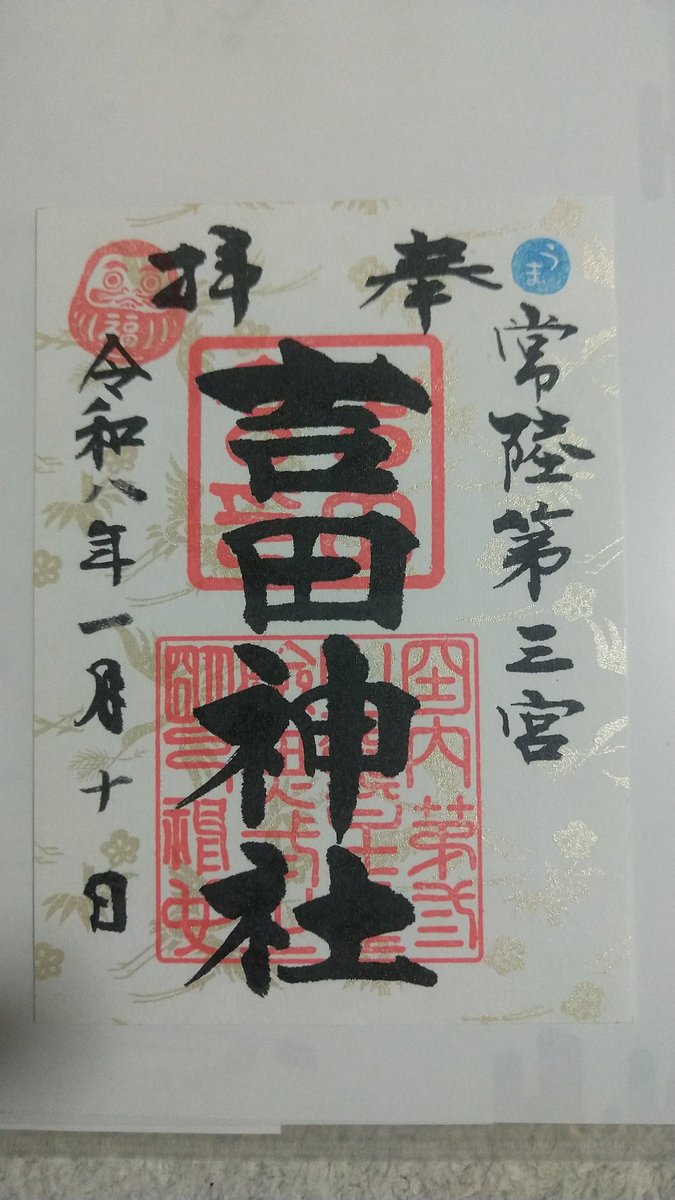 奉拝
うま
常陸第三宮
吉田神社
令和八年一月十日
福